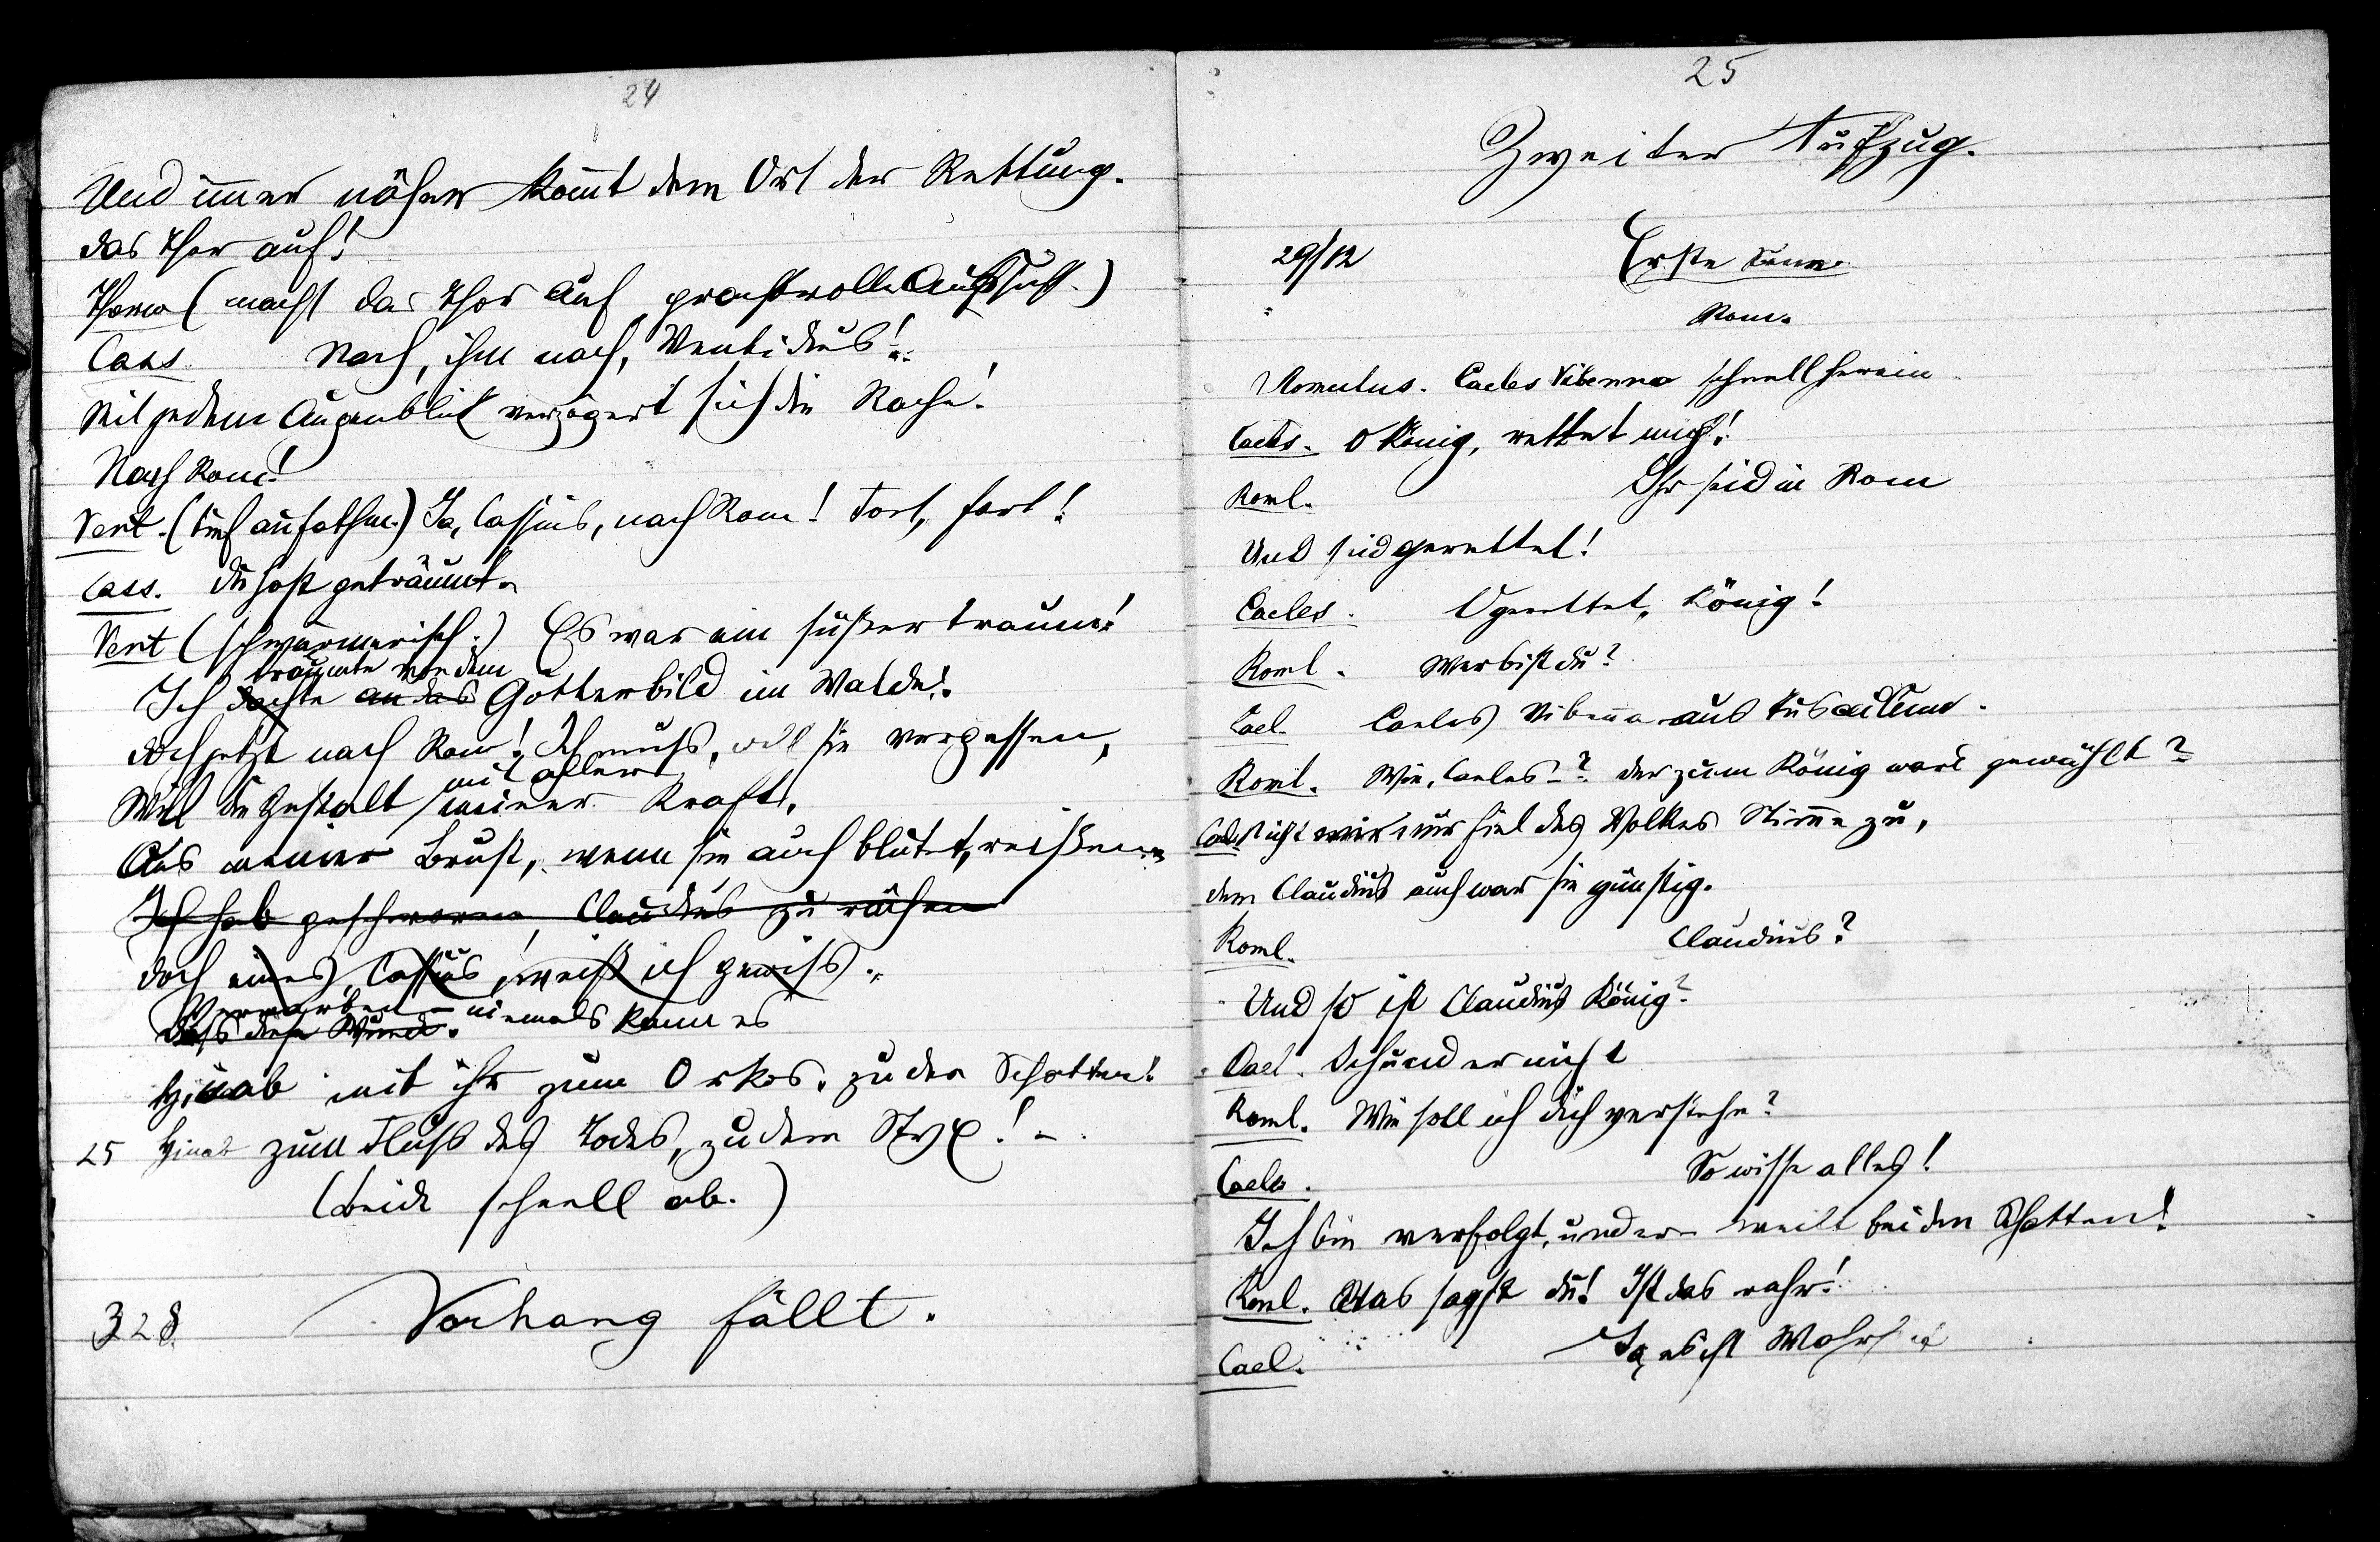 24
Und immer näher kommt dem Ort der Rettung.
Das Thor auf!
(macht das Thor auf prachtvolle Aussicht.)
Cass. Nach, ihm nach, Ventidius!
Mit jedem Augenblick verzögert sich die Rache!
Nach Rom!
Vent. (tief aufathm.) Ja, Cassius, nach Rom! Fort, fort!
Cass. Du hast geträumt.
Vent (schwärmerisch.) Es war ein süßer Traum!
träumte von dem
Ich dachte an das Götterbild im Walde!
Doch jetzt nach Rom! Ich muß, will sie vergessen,
mit aller
Will die Gestalt meiner Kraft,
Aus meiner Brust, wenn sie auch blutet, reißen
Ich hab geschworen, Claudius zu rächen
Doch eines, Cassius, weiß ich gewiß.
Vernarben niemals kann es
Daß diese Wunde.
Hinab mit ihr zum Orkos, zu den Schatten!
25 Hinab zum Fluß des Todes, zu dem Styx! –
(Beide schnell ab.)
328. Vorhang fällt.
25
Zweiter Aufzug.
29/12 Erste Scene.
Rom.
Romulus. Caeles Vibenna schnell herein
Caeles. O König, rettet mich!
Roml. Ihr seid in Rom
Und seid gerettet!
Caeles. O gerettet, König!
Roml. Wer bist du?
Cael. Caeles Vibenna aus Tusculum.
Roml. Wie, Caeles? der zum König ward gewählt?
Cael. Nicht mir nur fiel des Volkes Stimme zu,
dem Claudius auch war sie günstig.
Roml. Claudius?
Und so ist Claudius König?
Cael. Ich und er nicht
Roml. Wie soll ich dich verstehn?
Caeles. So wisse alles!
Ich bin verfolgt, und er weilt bei den Schatten!
Roml. Was sagst du! Ist das wahr!
Cael. Ja, es ist Wahrheit